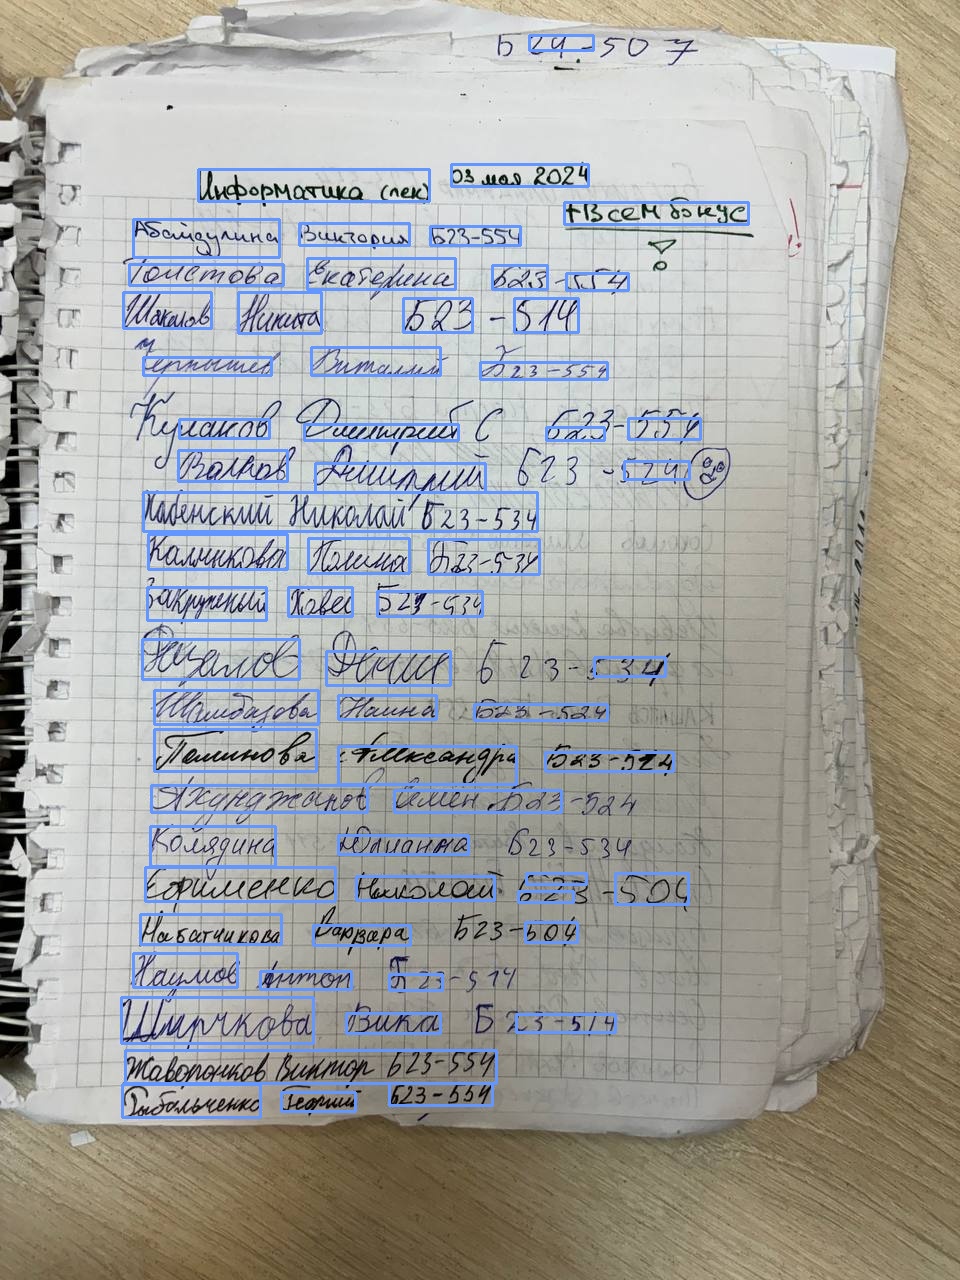 Б24-507
Информатика (лек) 03 мая 2024
+Всем бонус
Абайдулина Виктория Б23-554
Толстова Екатерина Б23-554
Шакалов Никита Б23-514
Чернышев Виталий Б23-554
Кулаков Дмитрий С Б23-554
Волков Дмитрий Б23-524
Хабенский Николай Б23-534
Калмыкова Полина Б23-534
Закружный Павел Б23-534
Фазалов Денис Б23-534
Шамбазова Наина Б23-524
Полинова Александра Б23-524
Ахунджанов Семен Б23-524
Колядина Юлианна Б23-534
Ефрименко Николай Б23-504
Набатчикова Варвара Б23-504
Наумов Антон Б23-514
Ширчкова Вика Б23-514
Жаворонков Виктор Б23-554
Рыбальченко Георгий Б23-554